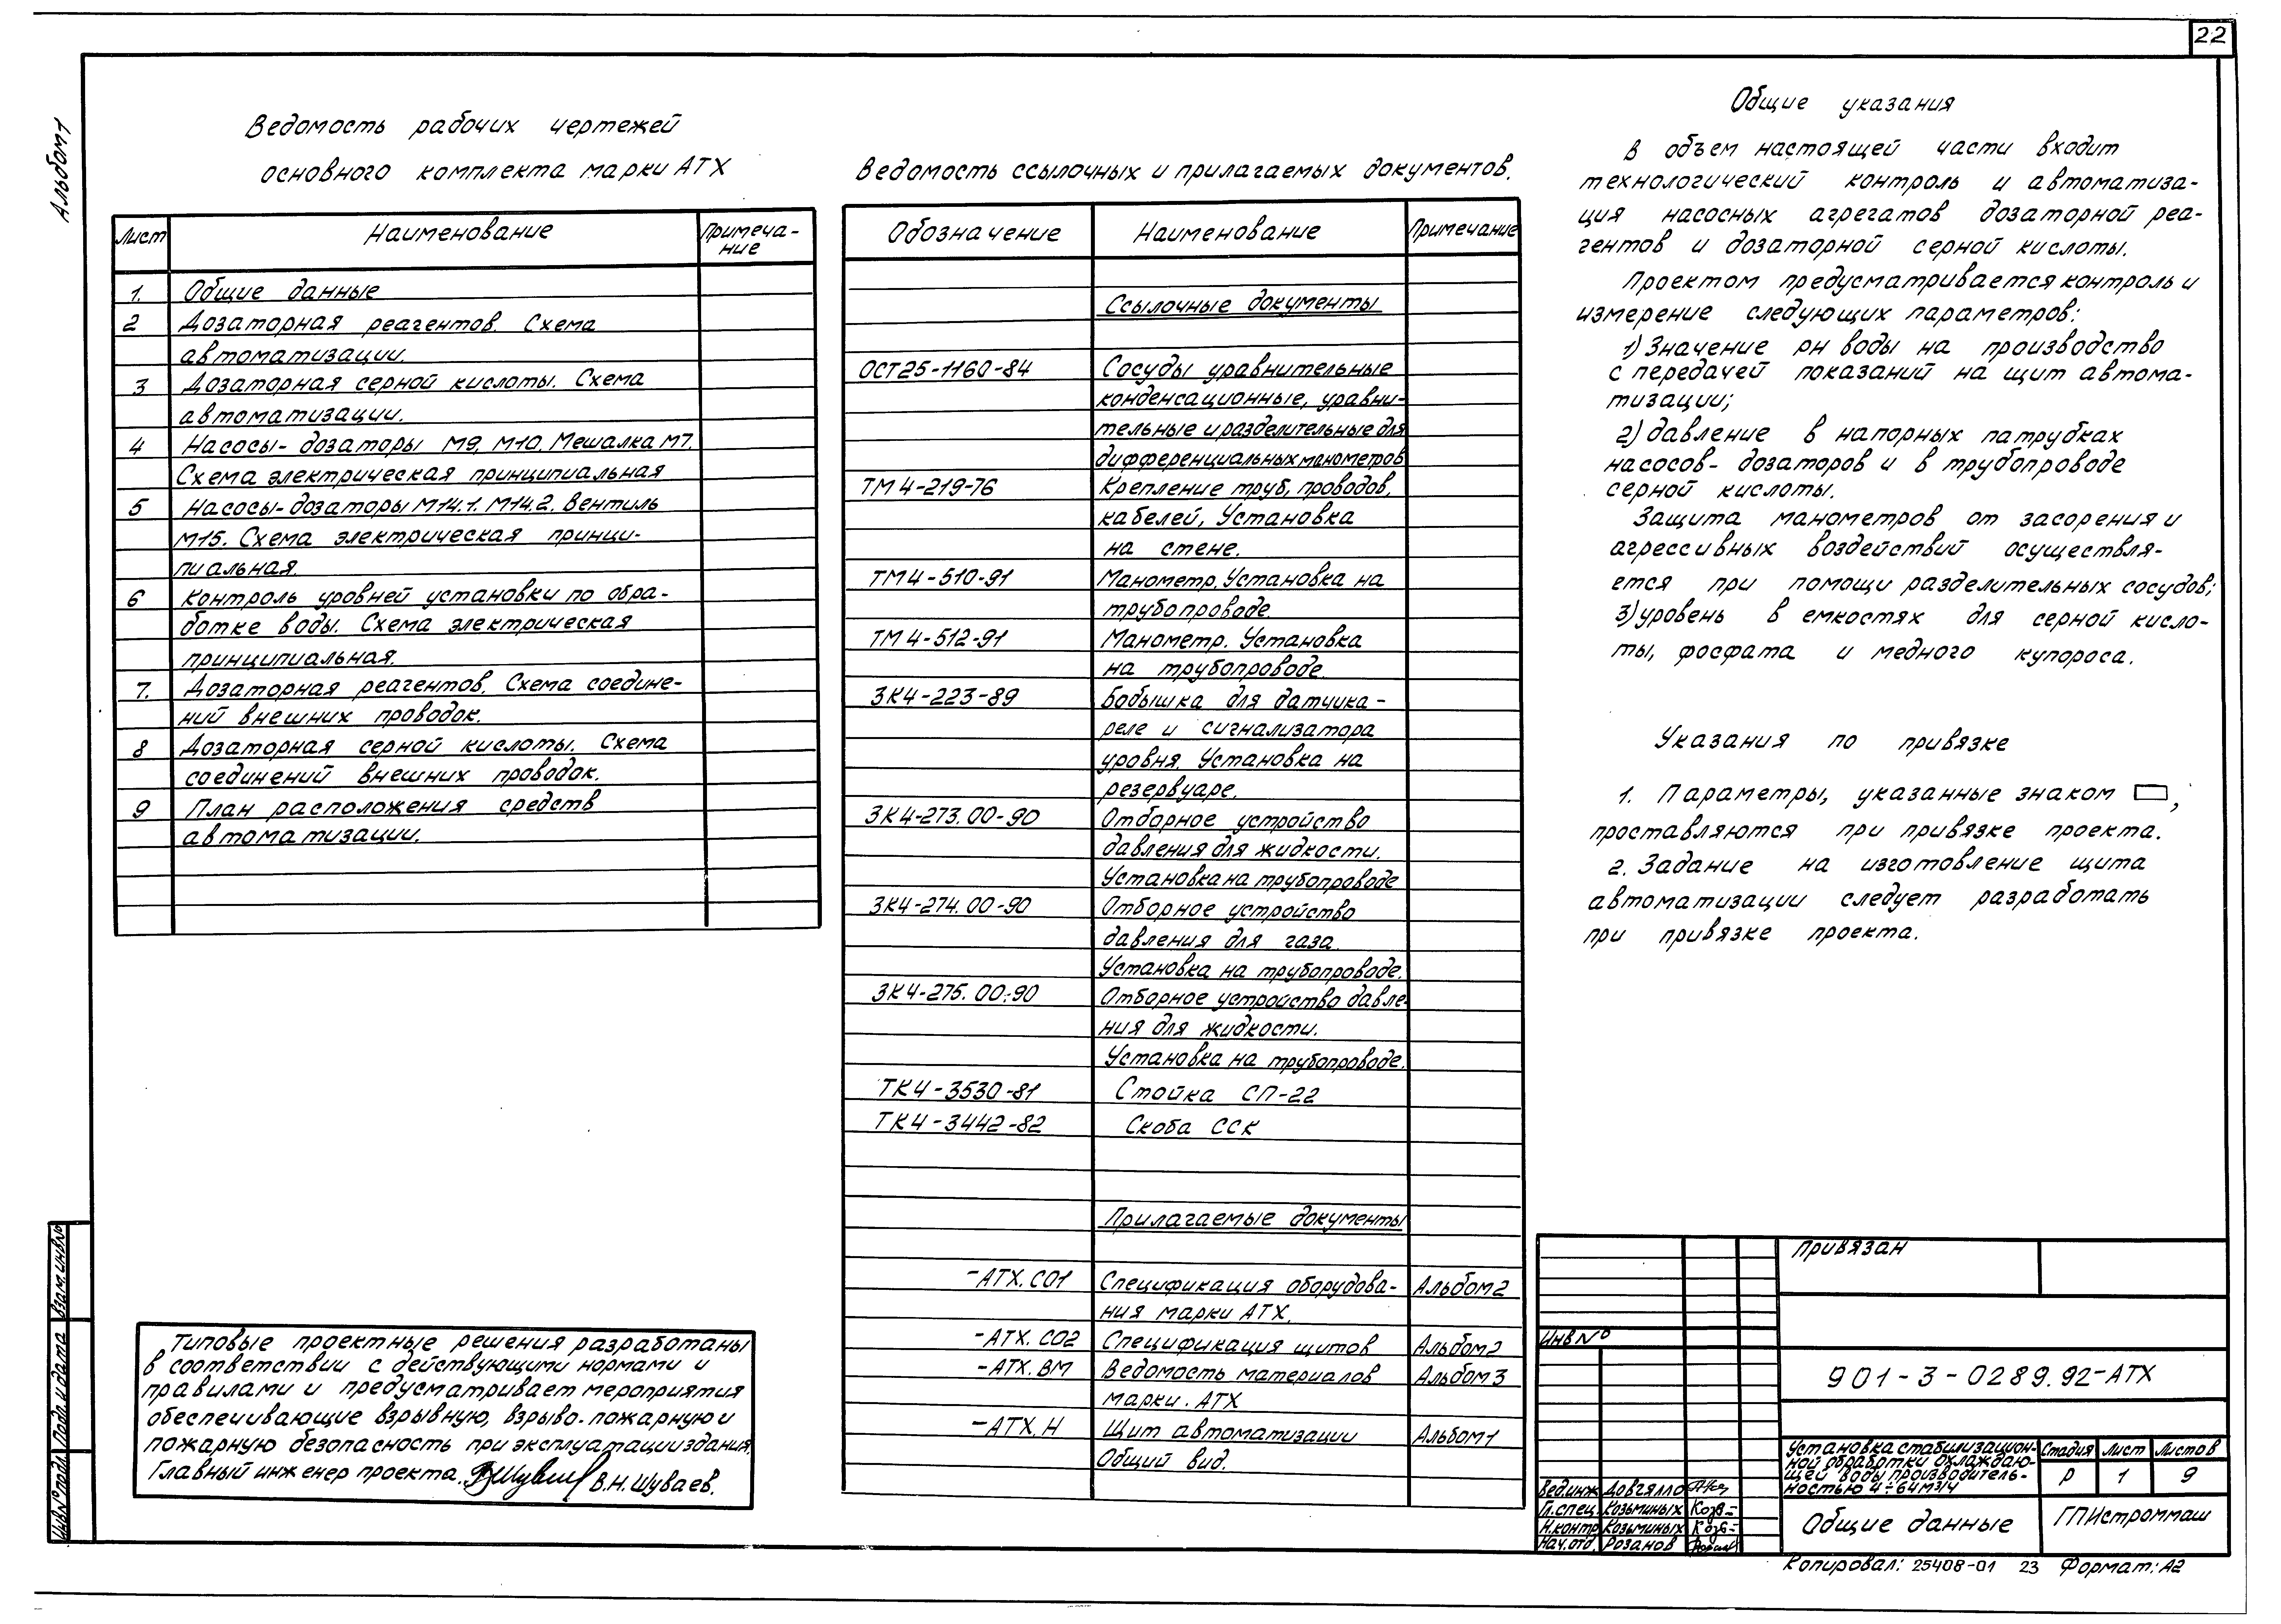 22
Альбом 1
Ведомость рабочих чертежей
основного комплекта марки АТХ
Лист Наименование Примеча-
ние
1. Общие данные
2 Дозаторная реагентов. Схема
автоматизации.
3 Дозаторная серной кислоты. Схема
автоматизации.
4 Насосы-дозаторы М9, М10. Мешалка М7.
Схема электрическая принципиальная
5 Насосы-дозаторы М14.1. М14.2. Вентиль
М15. Схема электрическая принци-
пиальная.
6 Контроль уровней установки по обра-
ботке воды. Схема электрическая
принципиальная.
7. Дозаторная реагентов. Схема соедине-
ний внешних проводок.
8 Дозаторная серной кислоты. Схема
соединений внешних проводок.
9 План расположения средств
автоматизации.
Типовые проектные решения разработаны
в соответствии с действующими нормами и
правилами и предусматривает мероприятия
обеспечивающие взрывную, взрыво-пожарную и
пожарную безопасность при эксплуатации здания.
Главный инженер проекта. В.Н. Шуваев.
Ведомость ссылочных и прилагаемых документов.
Обозначение Наименование Примечание
Ссылочные документы
ОСТ25-1160-84 Сосуды уравнительные
конденсационные, уравни-
тельные и разделительные для
дифференциальных манометров
ТМ4-219-76 Крепление труб, проводов,
кабелей, Установка
на стене.
ТМ4-510-91 Манометр. Установка на
трубопроводе.
ТМ4-512-91 Манометр. Установка
на трубопроводе.
ЗК4-223-89 Бобышка для датчика-
реле и сигнализатора
уровня. Установка на
резервуаре.
ЗК4-273.00-90 Отборное устройство
давления для жидкости.
Установка на трубопроводе
ЗК4-274.00-90 Отборное устройство
давления для газа.
Установка на трубопроводе.
ЗК4-275.00-90 Отборное устройство давле-
ния для жидкости.
Установка на трубопроводе.
ТК4-3530-81 Стойка СП-22
ТК4-3442-82 Скоба ССК
Прилагаемые документы
-АТХ.СО1 Спецификация оборудова- Альбом 2
ния марки АТХ.
-АТХ.СО2 Спецификация щитов Альбом 2
-АТХ.ВМ Ведомость материалов Альбом 3
марки. АТХ
-АТХ.Н Щит автоматизации Альбом 1
Общий вид.
Общие указания
В объем настоящей части входит
технологический контроль и автоматиза-
ция насосных агрегатов дозаторной реа-
гентов и дозаторной серной кислоты.
Проектом предусматривается контроль и
измерение следующих параметров:
1) Значение рн воды на производство
с передачей показаний на щит автома-
тизации;
2) давление в напорных патрубках
насосов-дозаторов и в трубопроводе
серной кислоты.
Защита манометров от засорения и
агрессивных воздействий осуществля-
ется при помощи разделительных сосудов;
3) уровень в емкостях для серной кисло-
ты, фосфата и медного купороса.
Указания по привязке
1. Параметры, указанные знаком ▭,
проставляются при привязке проекта.
2. Задание на изготовление щита
автоматизации следует разработать
при привязке проекта.
Привязан
Инв №
901-3-0289.92-АТХ
Установка стабилизацион-
ной обработки охлаждаю-
щей воды производитель-
ностью 4÷64 м3/ч
Стадия Лист Листов
Р 1 9
Вед.инж. Довгялло
Гл.спец. Козьминых
Н.контр Козьминых
Нач.отд. Розанов
Общие данные
ГПИстроммаш
Копировал: 25408-01 23 Формат: А2
Инв № подл. Подп. и дата Взам. инв №